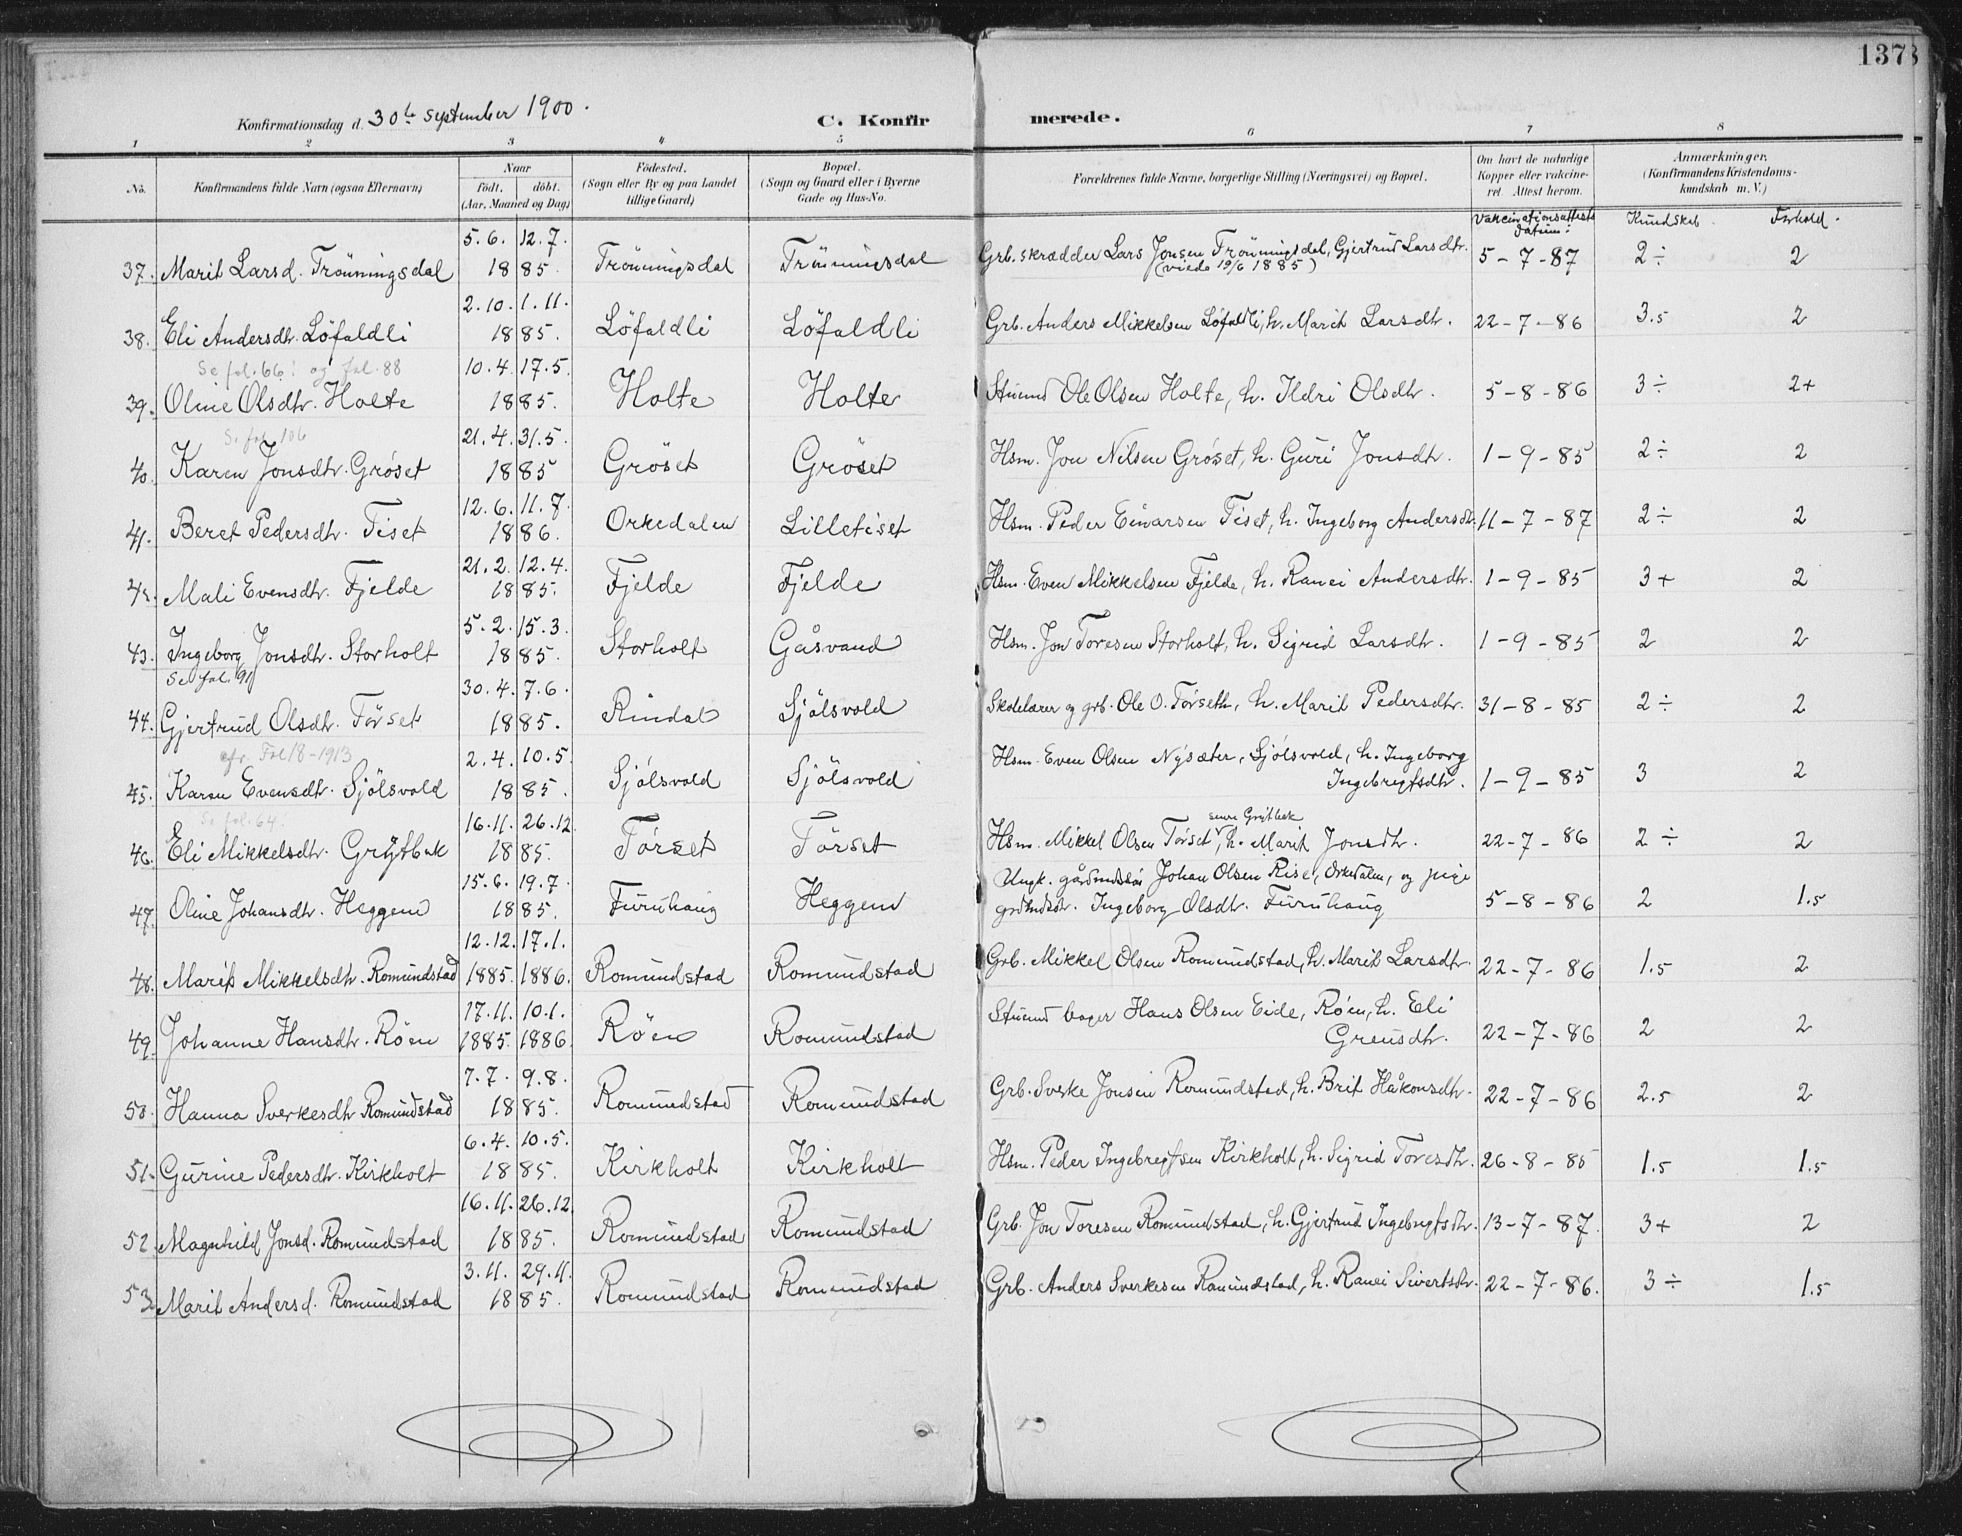 137
Konfirmationsdag d. 30te september 1900.
C. Konfirmerede.
1 2 3 4 5 6 7 8
No. Konfirmandens fulde Navn (ogsaa Efternavn) Naar født. døbt. (Aar, Maaned og Dag) Fødested. (Sogn eller By og paa Landet tillige Gaard) Bopæl. (Sogn og Gaard eller i Byerne Gade og Hus-No. Forældrenes fulde Navne, borgerlige Stilling (Næringsvei) og Bopæl. Om havt de naturlige Kopper eller vakcineret. Attest herom. Anmærkninger. (Konfirmandens Kristendomskundskab m. V.)
Vakcinationsattests datum: Kundskab. Forhold.
37. Marit Larsd. Trönningsdal 5.6. 12.7. 1885. Trönningsdal Trönningsdal Grb. skrædder Lars Jonsen Trönningsdal, Gjertrud Larsdtr. (viede 19/6 1885) 5-7-87 2÷ 2
38. Eli Andersdtr. Löfaldli 2.10. 1.11. 1885. Löfaldli Löfaldli Grb. Anders Mikkelsen Löfaldli, h. Marit Larsdtr. 22-7-86 3.5 2
Se fol. 66! og fol. 88
39. Oline Olsdtr. Holte 10.4. 17.5. 1885. Holte Holte Ole Olsen Holte, h. Ildri Olsdtr. 5-8-86 3÷ 2+
Se fol. 106
40. Karen Jonsdtr. Gröset 21.4. 31.5. 1885 Gröset Gröset Hsm. Jon Nilsen Gröset, h. Guri Jonsdtr. 1-9-85 2÷ 2
41. Beret Pedersdtr. Tiset 12.6. 11.7. 1886. Orkedalen Lilletiset Hsm. Peder Einarsen Tiset, h. Ingeborg Andersdtr. 11-7-87 2÷ 2
42. Mali Evensdtr. Fjelde 21.2. 12.4. 1885. Fjelde Fjelde Hsm. Even Mikkelsen Fjelde, h. Ranei Andersdtr. 1-9-85 3+ 2
43. Ingeborg Jonsdtr. Storholt 5.2. 15.3. 1885. Storholt Gåsvand Hsm. Jon Toresen Storholt, h. Sigrid Larsdtr. 1-9-85 2 2
Se fol. 91
44. Gjertrud Olsdtr. Törset 30.4. 7.6. 1885. Rindal Sjölsvold Skolelærer og grb. Ole O. Törseth, h. Marit Pedersdtr. 31-8-85 2÷ 2
cfr. Fol 18-1913
45. Karen Evensdtr. Sjölsvold 2.4. 10.5. 1885. Sjölsvold Sjölsvold Hsm. Even Olsen Nysæter, Sjölsvold, h. Ingeborg Ingebregtsdtr. 1-9-85 3 2
Se fol. 64!
46. Eli Mikkelsdtr. Grytbak 16.11. 26.12 1885. Törset Törset Hsm. Mikkel Olsen Törset, senere Grytbak h. Marit Jonsdtr. 22-7-86 2÷ 2
47. Oline Johansdtr. Heggem 15.6. 19.7. 1885. Furuhaug Heggem Ungk. Johan Olsen Rise, Orkedalen, og pige Ingeborg Olsdtr. Furuhaug 5-8-86 2 1.5
48. Marit Mikkelsdtr. Romundstad 12.12. 17.1. 1885. 1886. Romundstad Romundstad Grb. Mikkel Olsen Romundstad, h. Marit Larsdtr. 22-7-86 1.5 2
49. Johanne Hansdtr. Röen 17.11. 10.1. 1885. 1886. Röen Romundstad bager Hans Olsen Eide, Röen, h. Eli Greusdtr. 22-7-86 2 2
50. Hanna Sverkesdtr Romundstad 7.7. 9.8. 1885. Romundstad Romundstad Grb. Sverke Jonsen Romundstad, h. Brit Håkonsdtr. 22-7-86 2.5 2
51. Gurine Pedersdtr. Kirkholt 6.4. 10.5. 1885. Kirkholt Kirkholt Hsm. Peder Ingebregtsen Kirkholt, h. Sigrid Toresdtr. 26-8-85 1.5 1.5
52. Magnhild Jonsd. Romundstad 16.11. 26.12. 1885. Romundstad Romundstad Grb. Jon Toresen Romundstad, h. Gjertrud Ingebregtsdtr. 13-7-87. 3+ 2
53. Marit Andersd. Romundstad 3.11. 29.11. 1885. Romundstad Romundstad Grb. Anders Sverkesen Romundstad, h. Ranei Sivertsdtr. 22-7-86. 3÷ 1.5